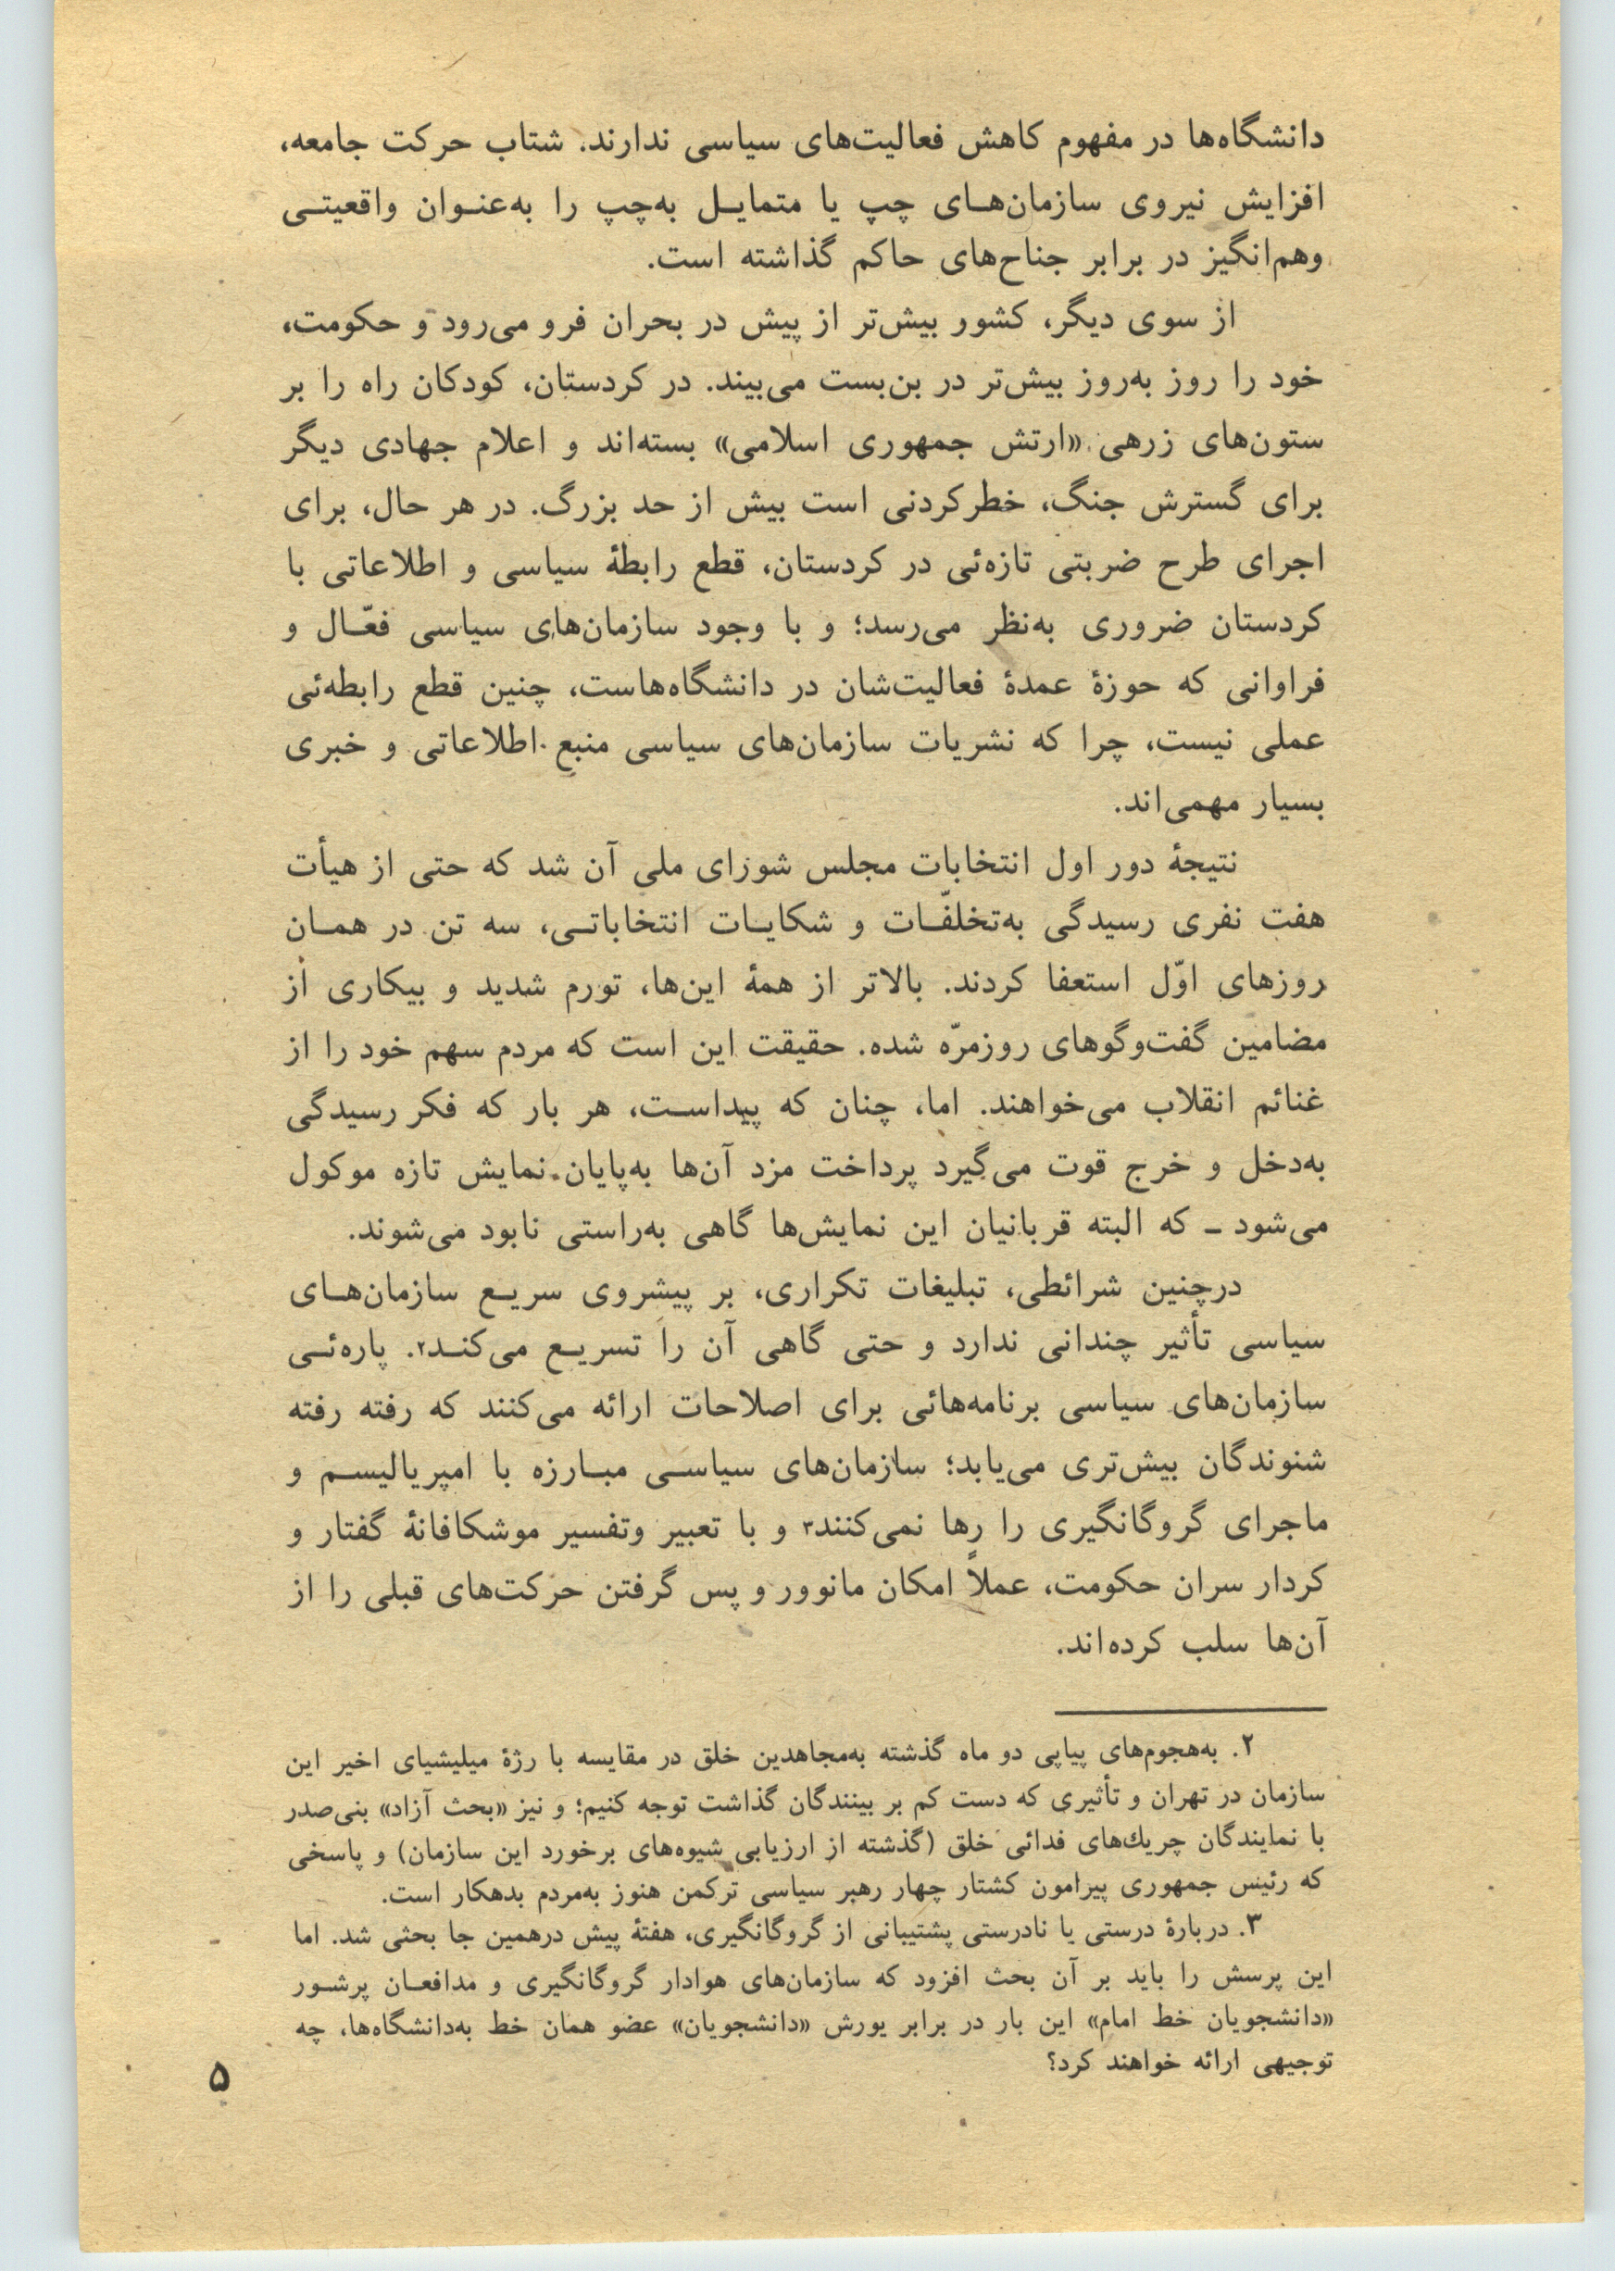 دانشگاه‌ها در مفهوم کاهش فعالیت‌های سیاسی ندارند. شتاب حرکت جامعه،
افزایش نیروی سازمان‌هـای چپ یا متمایـل به‌چپ را به‌عنـوان واقعیتـی
وهم‌انگیز در برابر جناح‌های حاکم گذاشته است.
از سوی دیگر، کشور بیش‌تر از پیش در بحران فرو می‌رود و حکومت،
خود را روز به‌روز بیش‌تر در بن‌بست می‌بیند. در کردستان، کودکان راه را بر
ستون‌های زرهی «ارتش جمهوری اسلامی» بسته‌اند و اعلام جهادی دیگر
برای گسترش جنگ، خطرکردنی است بیش از حد بزرگ. در هر حال، برای
اجرای طرح ضربتی تازه‌ئی در کردستان، قطع رابطهٔ سیاسی و اطلاعاتی با
کردستان ضروری به‌نظر می‌رسد؛ و با وجود سازمان‌های سیاسی فعّـال و
فراوانی که حوزهٔ عمدهٔ فعالیت‌شان در دانشگاه‌هاست، چنین قطع رابطه‌ئی
عملی نیست، چرا که نشریات سازمان‌های سیاسی منبع اطلاعاتی و خبری
بسیار مهمی‌اند.
نتیجهٔ دور اول انتخابات مجلس شورای ملی آن شد که حتی از هیأت
هفت نفری رسیدگی به‌تخلفّـات و شکایـات انتخاباتـی، سه تن در همـان
روزهای اوّل استعفا کردند. بالاتر از همهٔ این‌ها، تورم شدید و بیکاری از
مضامین گفت‌وگوهای روزمرّه شده. حقیقت این است که مردم سهم خود را از
غنائم انقلاب می‌خواهند. اما، چنان که پیداسـت، هر بار که فکر رسیدگی
به‌دخل و خرج قوت می‌گیرد پرداخت مزد آن‌ها به‌پایان نمایش تازه موکول
می‌شود ـ که البته قربانیان این نمایش‌ها گاهی به‌راستی نابود می‌شوند.
درچنین شرائطی، تبلیغات تکراری، بر پیشروی سریـع سازمان‌هـای
سیاسی تأثیر چندانی ندارد و حتی گاهی آن را تسریـع می‌کنـد۲. پاره‌ئـی
سازمان‌های سیاسی برنامه‌هائی برای اصلاحات ارائه می‌کنند که رفته رفته
شنوندگان بیش‌تری می‌یابد؛ سازمان‌های سیاسـی مبـارزه با امپریالیسـم و
ماجرای گروگانگیری را رها نمی‌کنند۳ و با تعبیر وتفسیر موشکافانهٔ گفتار و
کردار سران حکومت، عملاً امکان مانوور و پس گرفتن حرکت‌های قبلی را از
آن‌ها سلب کرده‌اند.
۲. به‌هجوم‌های پیاپی دو ماه گذشته به‌مجاهدین خلق در مقایسه با رژهٔ میلیشیای اخیر این
سازمان در تهران و تأثیری که دست کم بر بینندگان گذاشت توجه کنیم؛ و نیز «بحث آزاد» بنی‌صدر
با نمایندگان چریك‌های فدائی خلق (گذشته از ارزیابی شیوه‌های برخورد این سازمان) و پاسخی
که رئیس جمهوری پیرامون کشتار چهار رهبر سیاسی ترکمن هنوز به‌مردم بدهکار است.
۳. دربارهٔ درستی یا نادرستی پشتیبانی از گروگانگیری، هفتهٔ پیش درهمین جا بحثی شد. اما
این پرسش را باید بر آن بحث افزود که سازمان‌های هوادار گروگانگیری و مدافعـان پرشـور
«دانشجویان خط امام» این بار در برابر یورش «دانشجویان» عضو همان خط به‌دانشگاه‌ها، چه
توجیهی ارائه خواهند کرد؟
۵